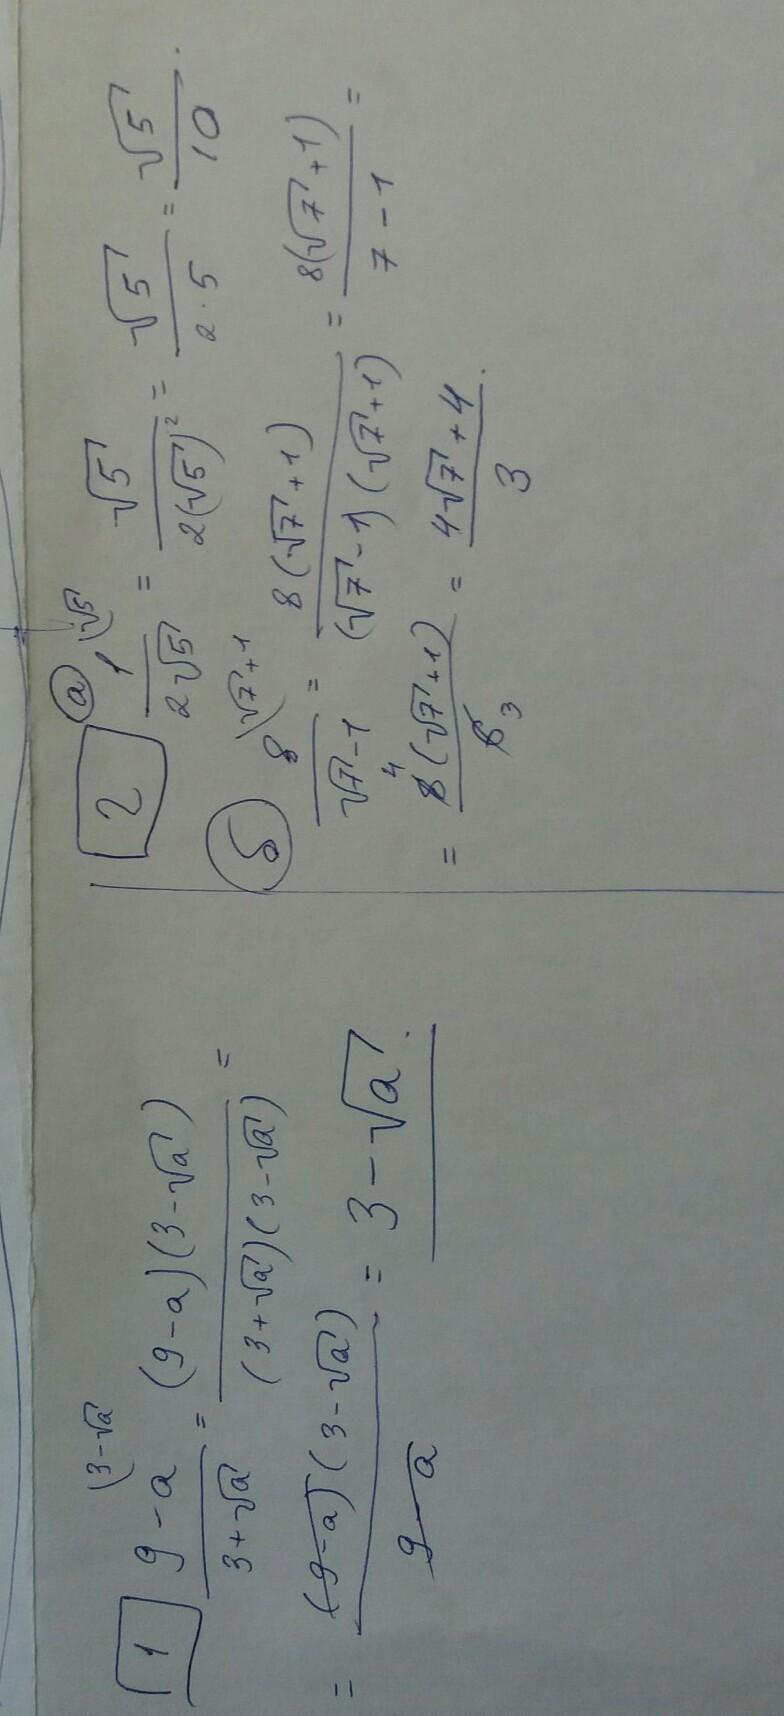 1 (9-a)/(3+√a) (3-√a = ((9-a)(3-√a))/((3+√a)(3-√a)) =
= ((9-a)(3-√a))/(9-a) = 3-√a.
2 а 1/(2√5) (√5 = √5/(2(√5)²) = √5/(2·5) = √5/10.
б 8/(√7-1) (√7+1 = (8(√7+1))/((√7-1)(√7+1)) = (8(√7+1))/(7-1) =
= (8 4 (√7+1))/(6 3) = (4√7+4)/3.